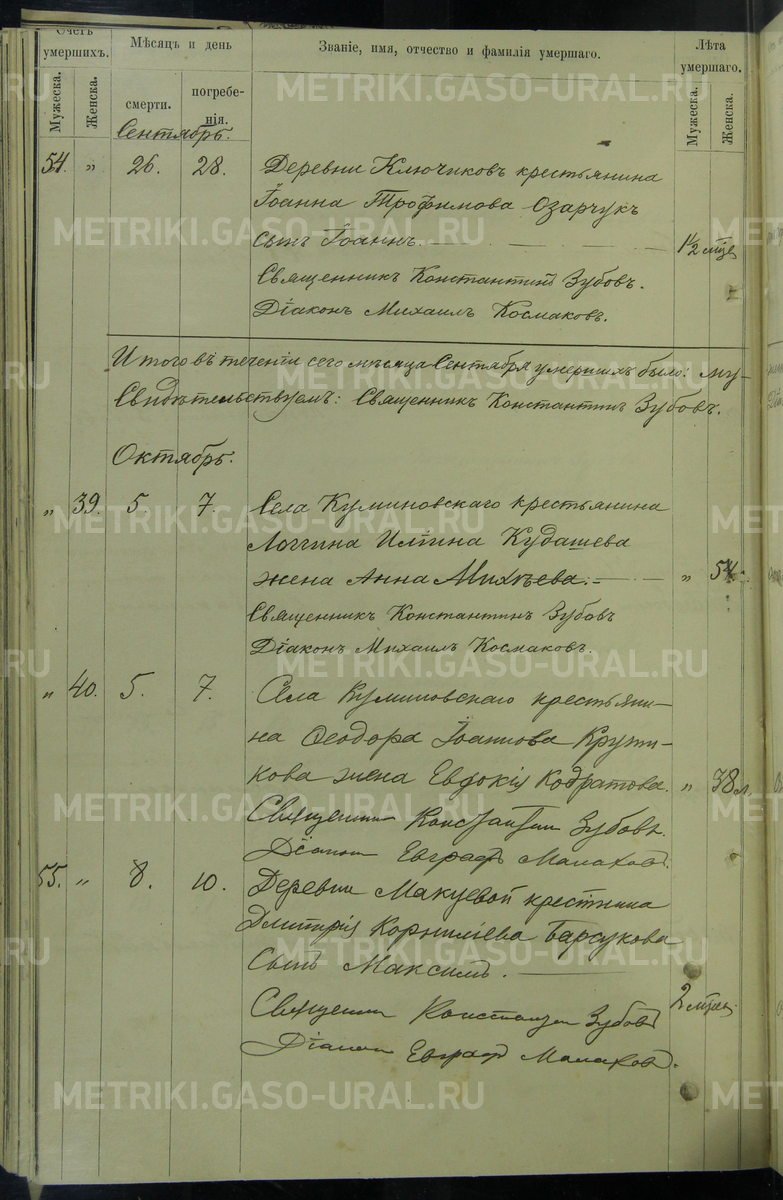 Счетъ умершихъ.
Мѣсяцъ и день
Званіе, имя, отчество и фамилія умершаго.
Лѣта умершаго.
Мужеска.
Женска.
смерти.
погребенія.
Мужеска.
Женска.
Сентябрь.
54. „ 26. 28. Деревни Ключиковъ крестьянина
Іоанна Трофимова Озарчукъ
сынъ Іоаннъ. 1½ мце
Священникъ Константинъ Зубовъ.
Діаконъ Михаилъ Космаковъ.
Итого въ теченіи сего мѣсяца Сентября умершихъ было: му-
Свидѣтельствуемъ: Священникъ Константинъ Зубовъ.
Октябрь.
„ 39. 5. 7. Села Куминовскаго крестьянина
Логгина Иліина Кудашева
жена Анна Михѣева. „ 54.
Священникъ Константинъ Зубовъ
Діаконъ Михаилъ Космаковъ.
„ 40. 5. 7. Села Куминовскаго крестьяни-
на Ѳеодора Іоаннова Крути-
кова жена Евдокія Кодратова. „ 38 л.
Священник Константин Зубовъ.
Діакон Евграфъ Малаховъ.
55. „ 8. 10. Деревни Макуевой крестьянина
Дмитрія Корниліева Барсукова
Сынъ Максимъ. 2 мце.
Священник Константин Зубовъ
Діакон Евграфъ Малаховъ.
METRIKI.GASO-URAL.RU